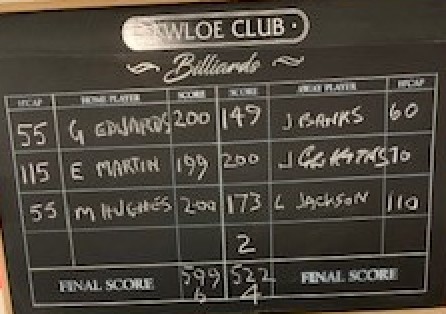 WLOE CLUB
Billiards
H'CAP HOME PLAYER SCORE SCORE AWAY PLAYER H'CAP
55 G EDWARDS 200 149 J BANKS 60
115 E MARTIN 199 200 J 70
55 M HUGHES 200 173 L JACKSON 110
2
FINAL SCORE 599 522 FINAL SCORE
6 4